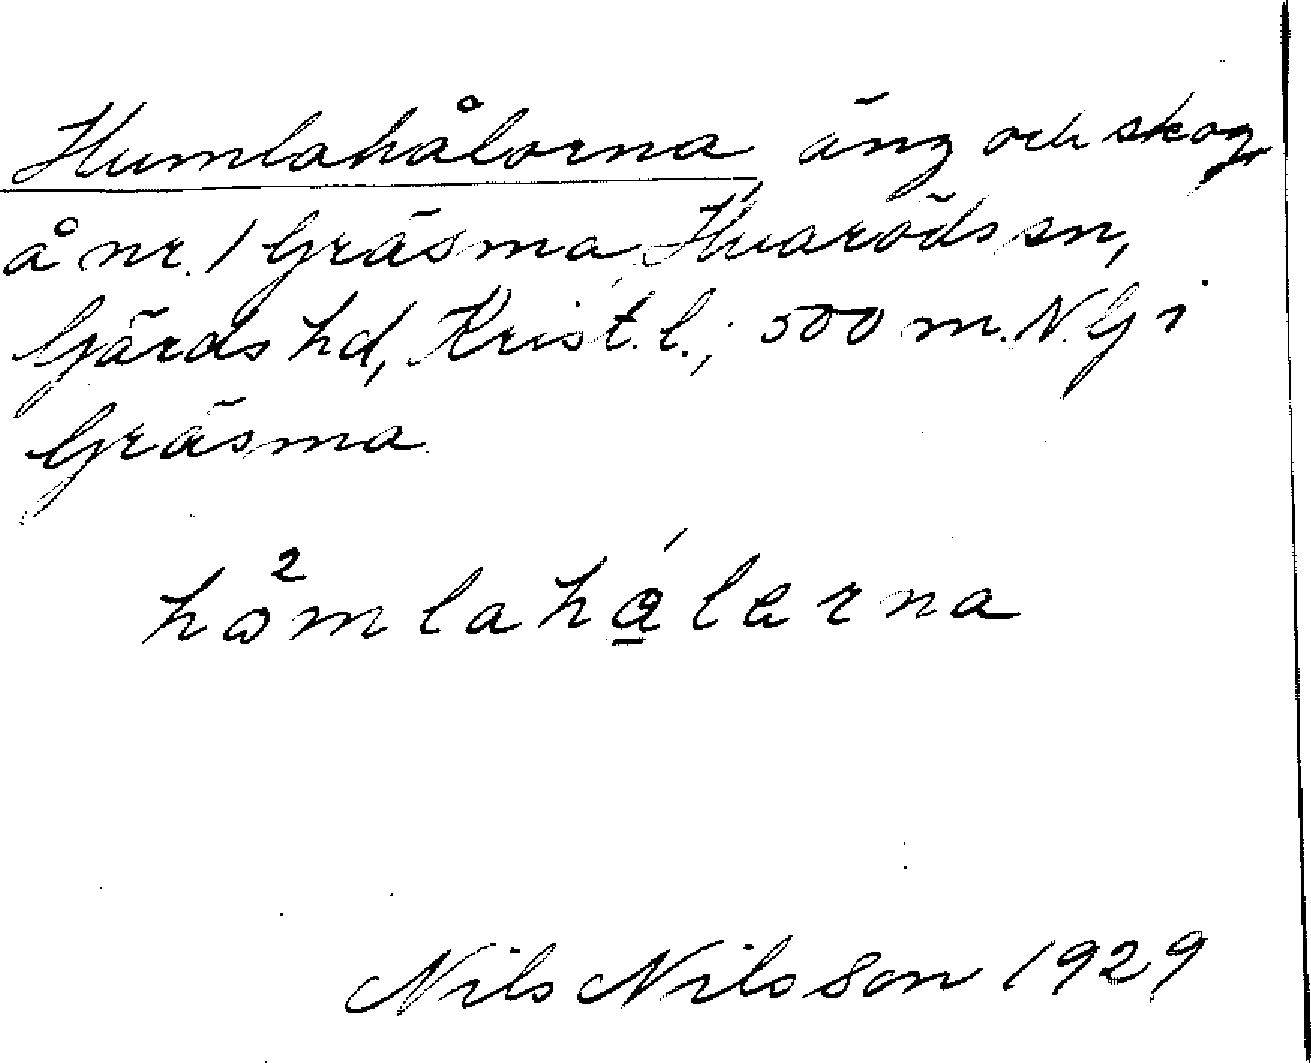 Humlahålorna äng och skog
å nr. 1 Gräsma, Huaröds sn,
Gärds hd, Krist. l.; 500 m. N. G i
Gräsma.
hå²mlahá̱lerna
Nils Nilsson 1929